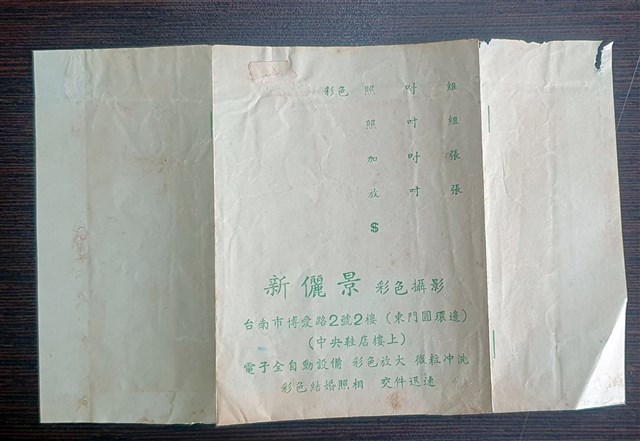 彩色 照 吋 組
照 吋 組
加 吋 張
放 吋 張
$
新儷景 彩色攝影
台南市博愛路2號2樓（東門圓環邊）
（中央鞋店樓上）
電子全自動設備 彩色放大 微粒冲洗
彩色結婚照相 交件迅速